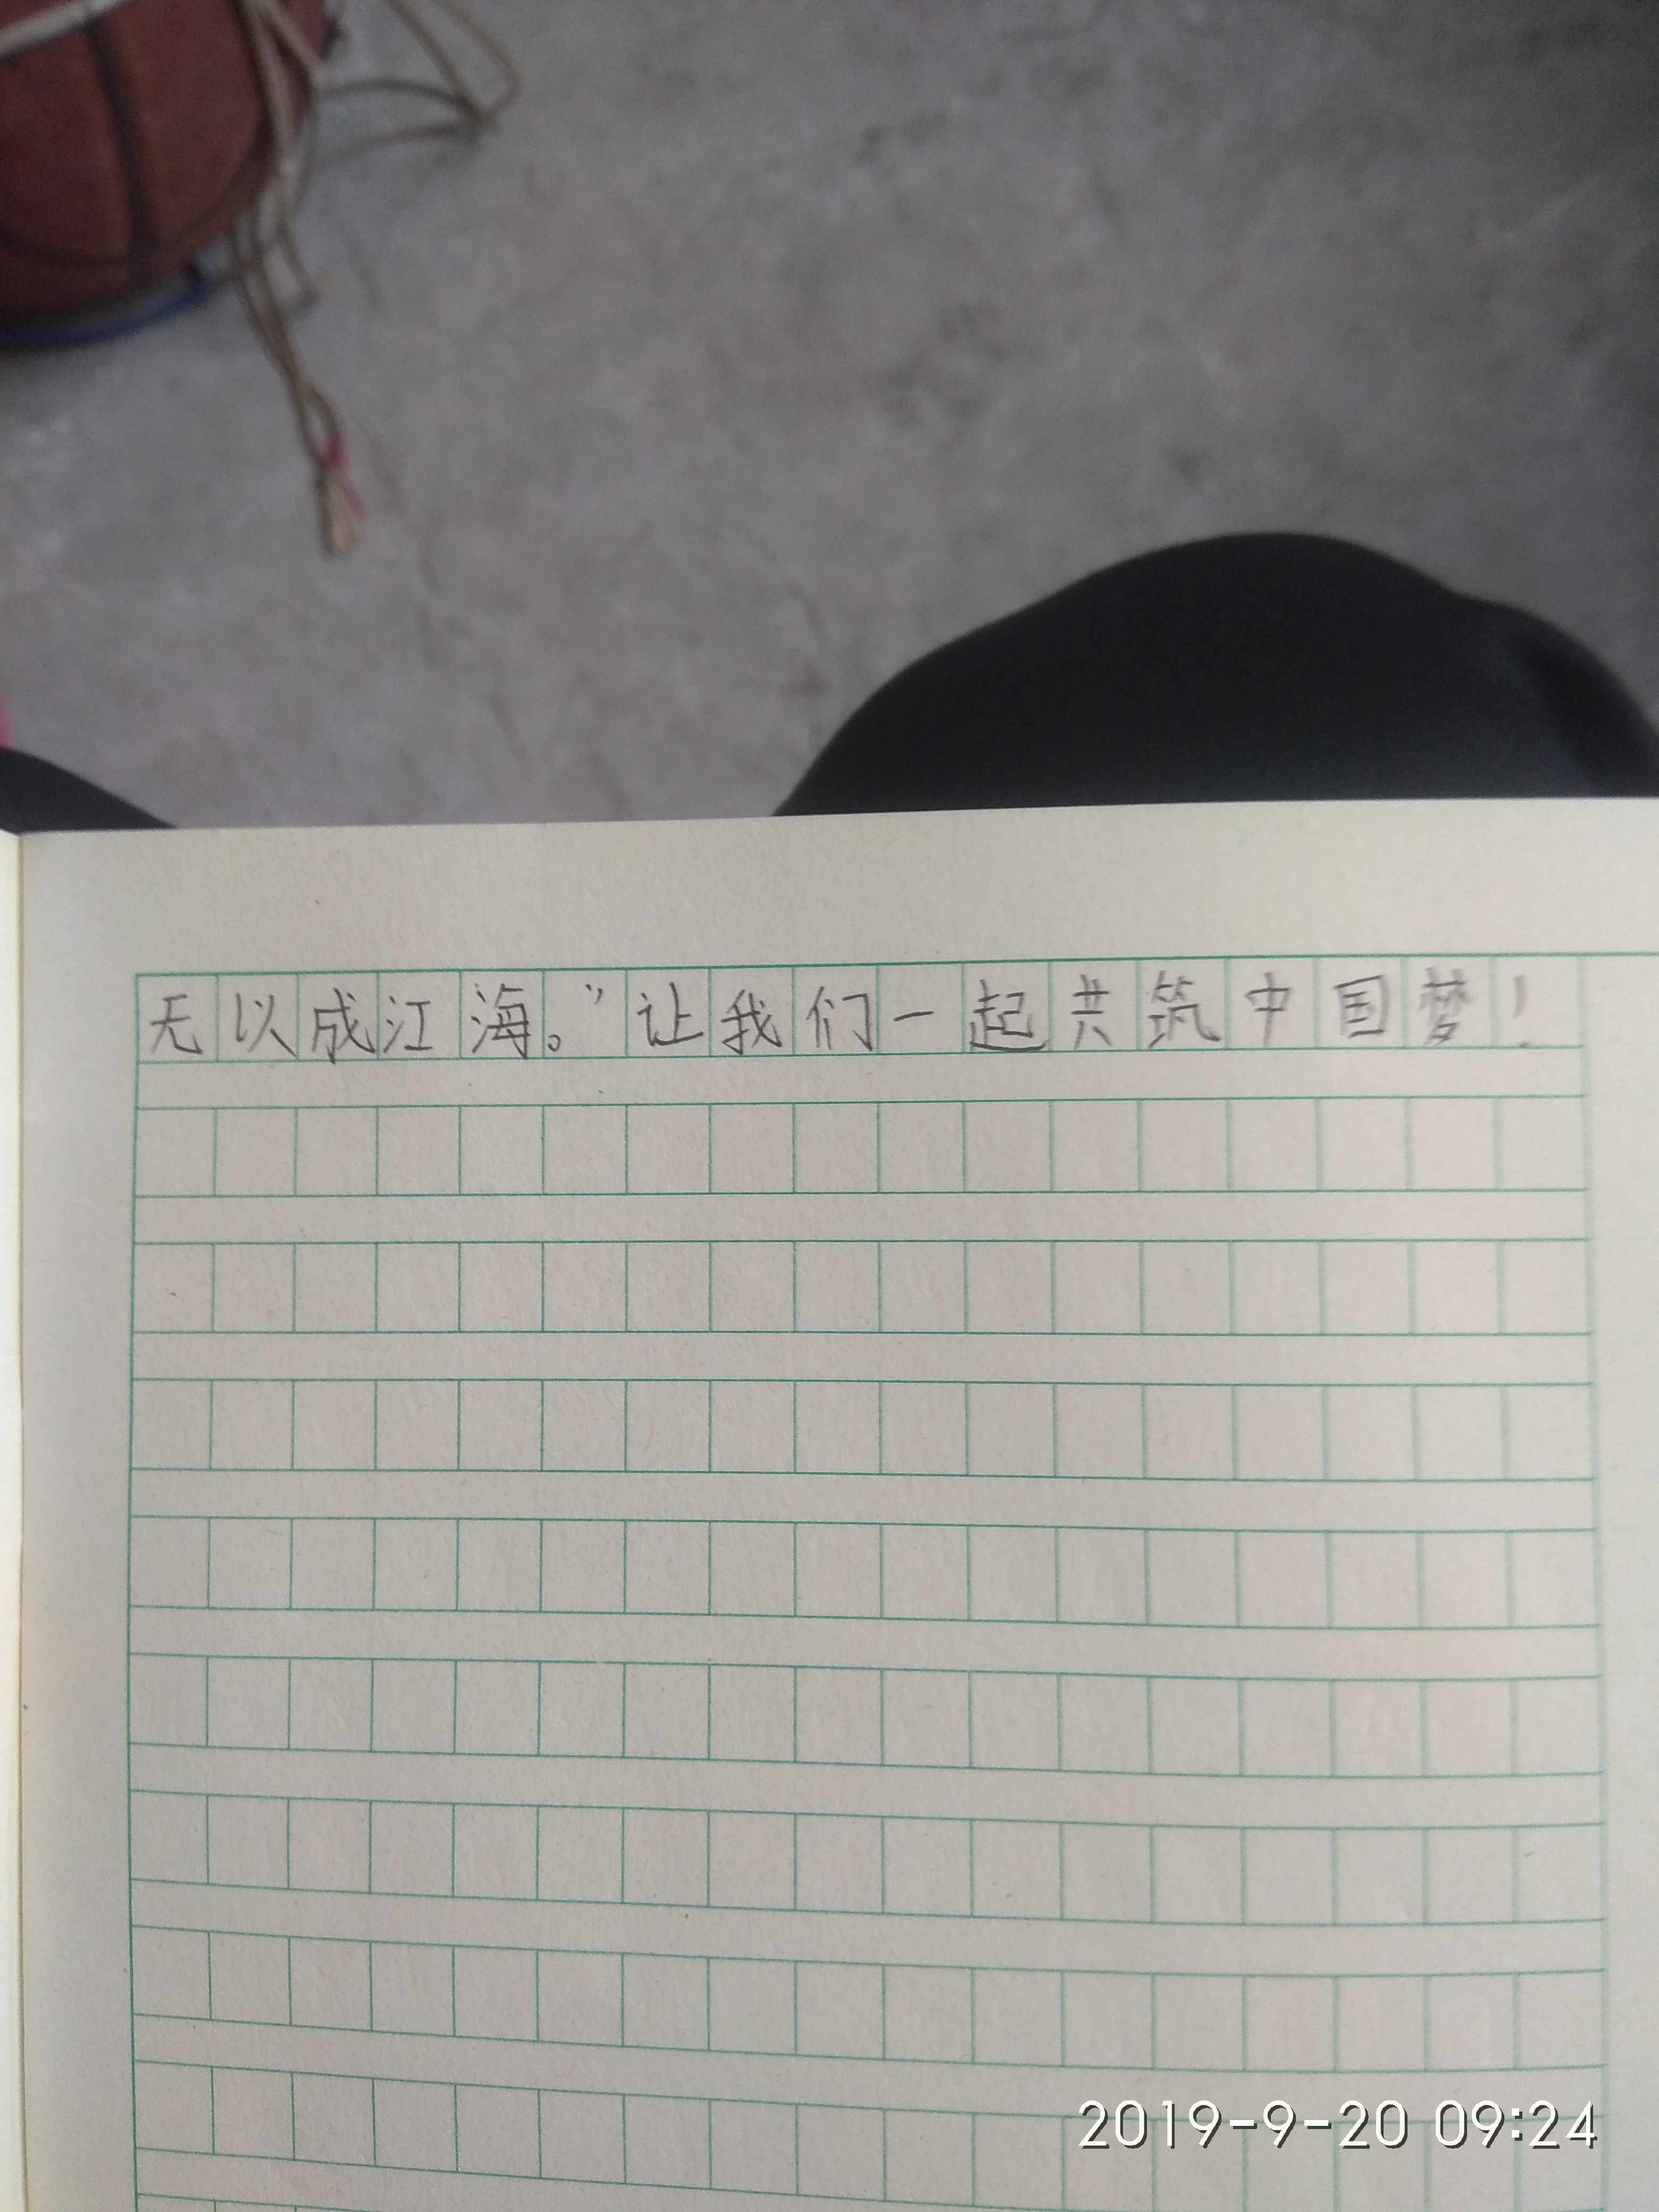 无以成江海。”让我们一起共筑中国梦！
2019-9-20 09:24